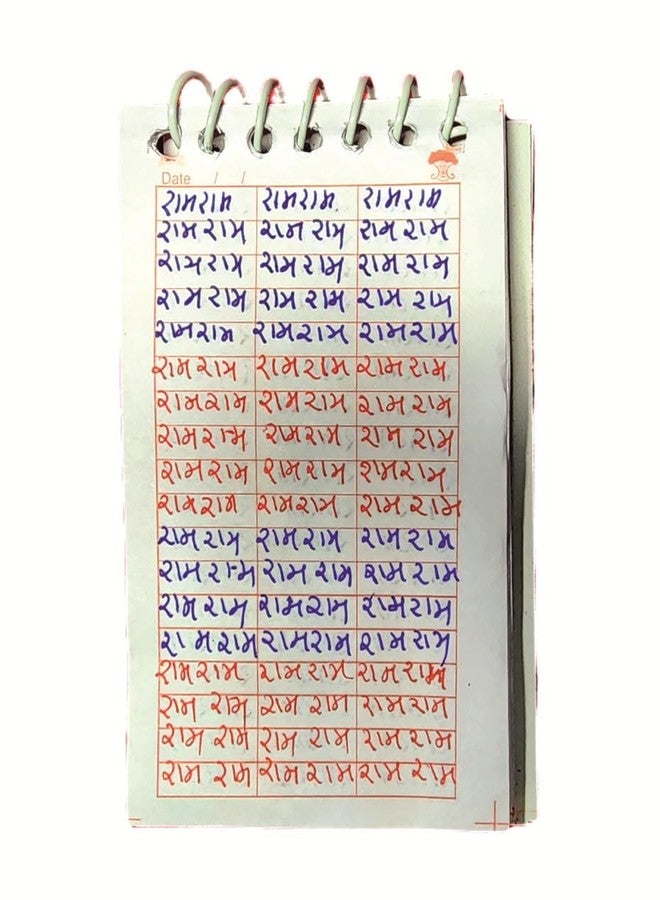 Date / /
रामराम रामराम रामराम
राम राम राम राम राम राम
राम राम राम राम राम राम
राम राम राम राम राम राम
राम राम राम राम राम राम
राम राम राम राम राम राम
राम राम राम राम राम राम
राम राम राम राम राम राम
राम राम राम राम राम राम
राम राम राम राम राम राम
राम राम राम राम राम राम
राम राम राम राम राम राम
राम राम राम राम राम राम
राम राम राम राम राम राम
राम राम राम राम राम राम
राम राम राम राम राम राम
राम राम राम राम राम राम
राम राम राम राम राम राम